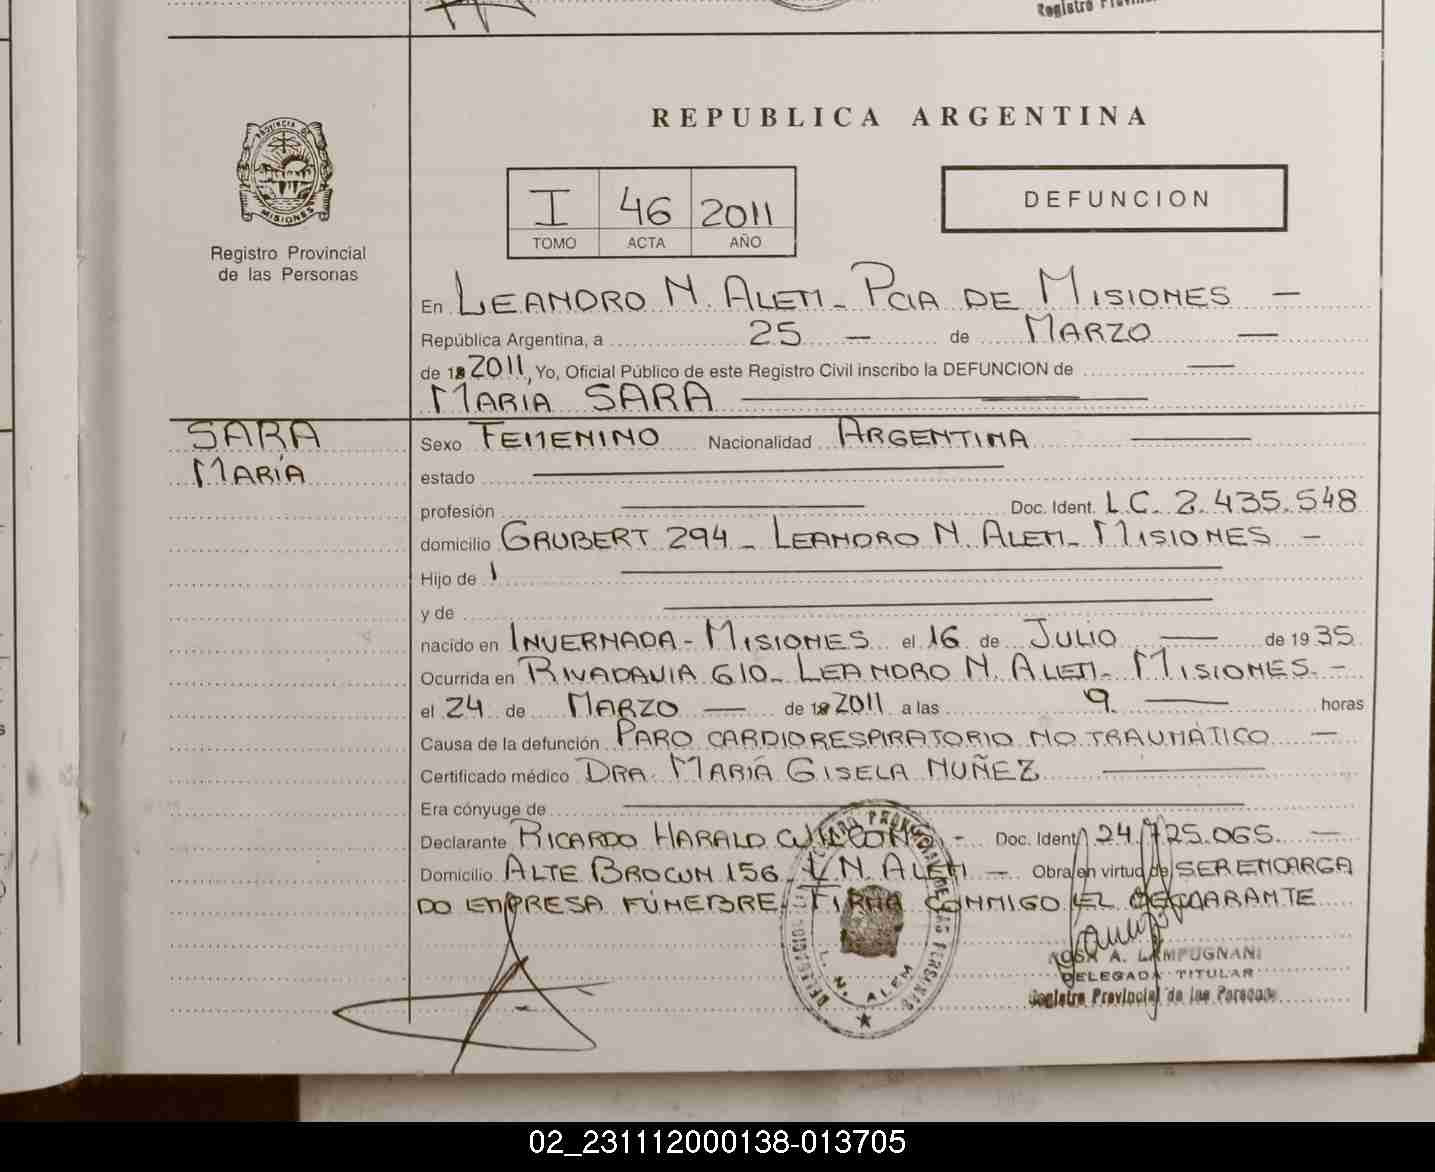 Registro Provincial
REPUBLICA ARGENTINA
PROVINCIA DE
MISIONES
Registro Provincial
de las Personas
I 46 2011
TOMO ACTA AÑO
DEFUNCION
En LEANDRO N. ALEM - PCIA DE MISIONES -
República Argentina, a 25 - de MARZO -
de 2011, Yo, Oficial Público de este Registro Civil inscribo la DEFUNCION de
MARIA SARA
SARA
MARÍA
Sexo FEMENINO Nacionalidad ARGENTINA
estado
profesión Doc. Ident. L.C. 2.435.548
domicilio GRUBERT 294 - LEANDRO N. ALEM - MISIONES -
Hijo de
y de
nacido en INVERNADA - MISIONES el 16 de JULIO - de 1935
Ocurrida en RIVADAVIA 610 - LEANDRO N. ALEM - MISIONES -
el 24 de MARZO - de 2011 a las 9 - horas
Causa de la defunción PARO CARDIORESPIRATORIO NO TRAUMÁTICO -
Certificado médico DRA. MARÍA GISELA NUÑEZ
Era cónyuge de
Declarante RICARDO HARALD - Doc. Ident. 24.725.065 -
Domicilio ALTE BROWN 156 - L.N. ALEM - Obra en virtud de SER ENCARGA
DO EMPRESA FÚNEBRE. FIRMA CONMIGO EL DECLARANTE
L. N. ALEM
ROSA A. LAMPUGNANI
DELEGADA TITULAR
Registro Provincial de las Personas
02_231112000138-013705